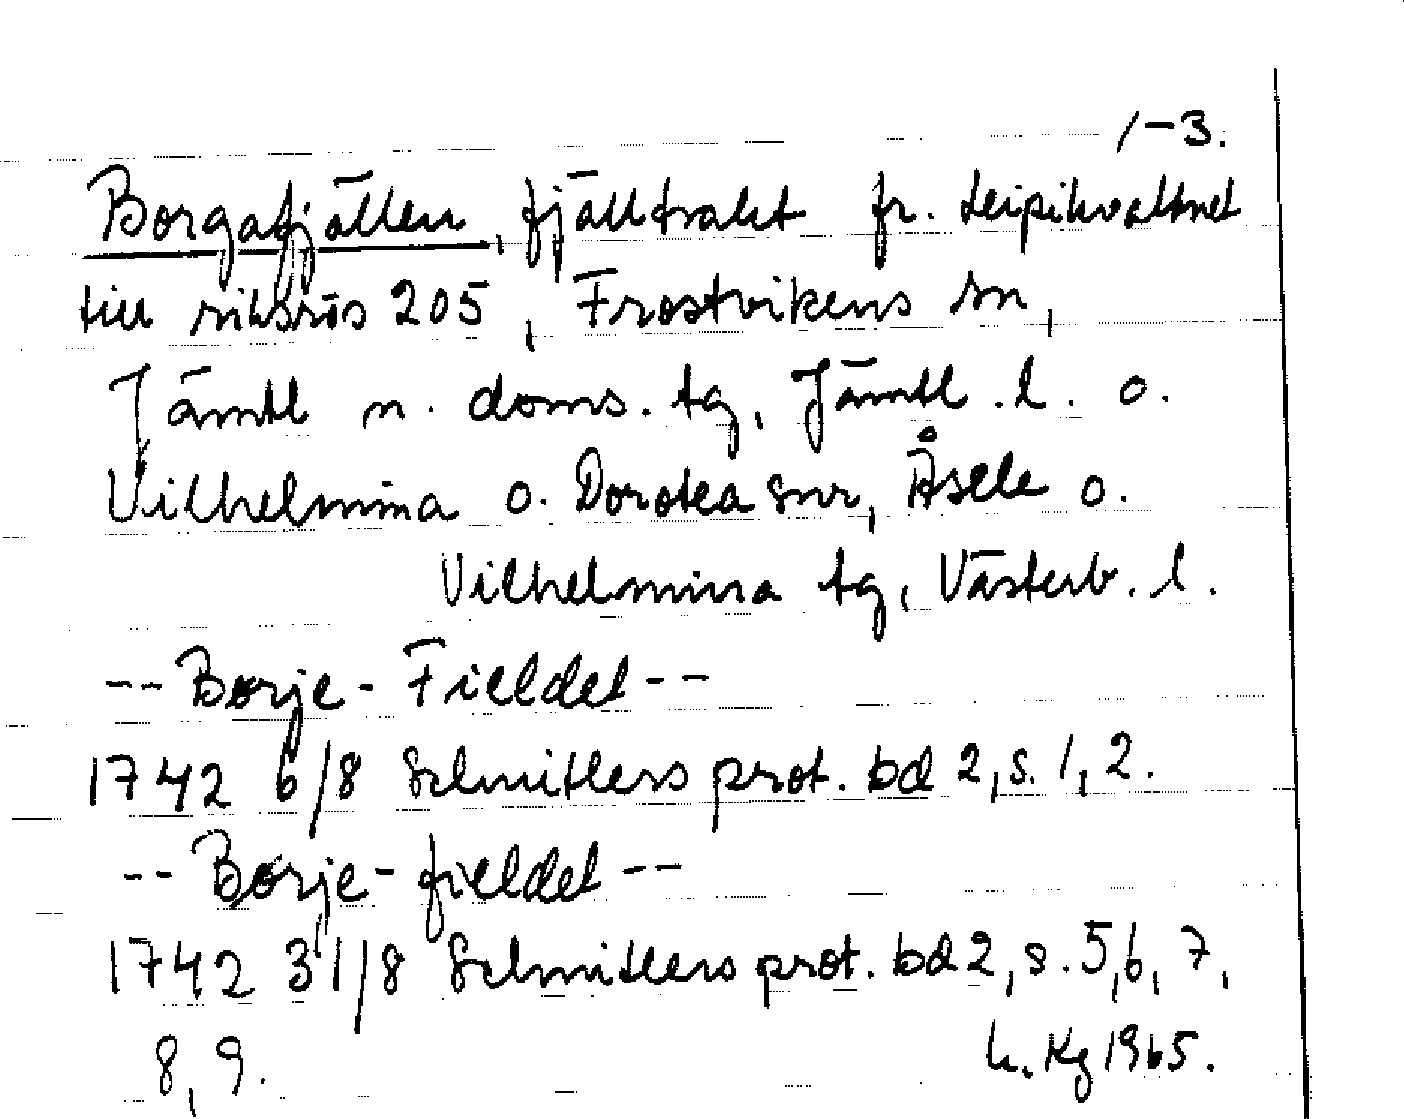 1-3.
Borgafjällen, fjälltrakt fr. Leipikvattnet
till riksrös 205, Frostvikens sn,
Jämtl n. doms. tg, Jämtl. l. o.
Vilhelmina o. Dorotea snr, Åsele o.
Vilhelmina tg, Västerb. l.
-- Børje-Fieldet --
1742 6/8 Schnitlers prot. bd 2, s. 1, 2.
-- Børje-fieldet --
1742 31/8 Schnitlers prot. bd 2, s. 5, 6, 7,
8, 9.
Kg 1965.